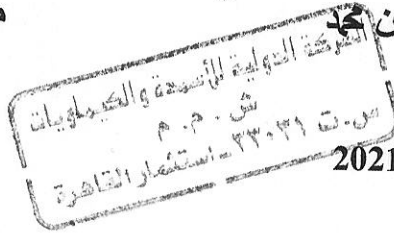 ن محمد
الشركة الدولية للأسمدة والكيماويات
ش . م . م
س . ت ٣٣٠٣١ - استثمار القاهرة
2021